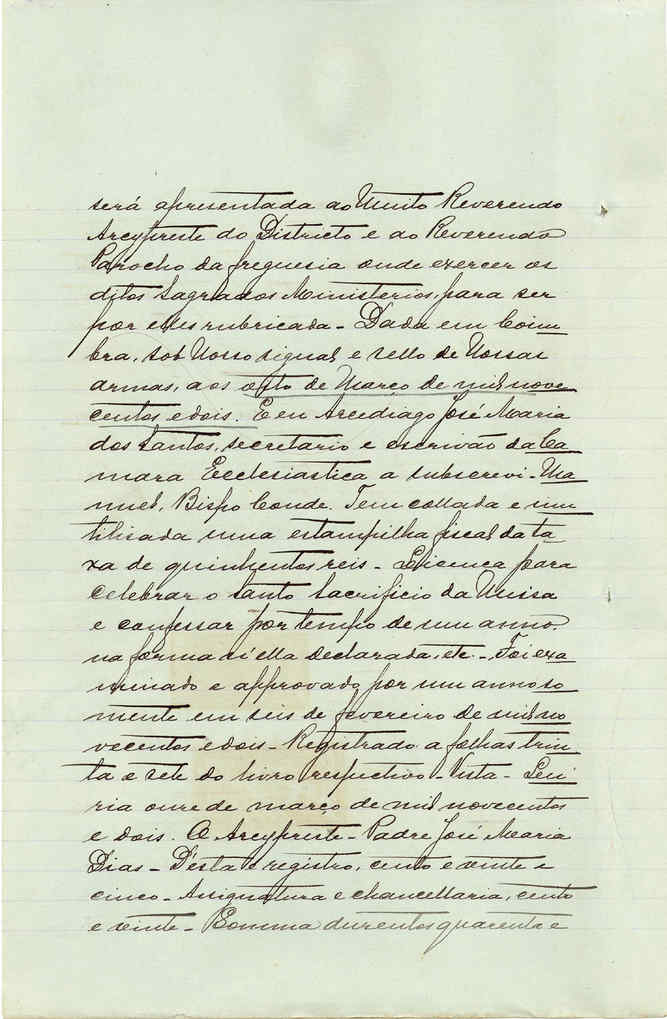 será apresentada ao Muito Reverendo
Arcypreste do Districto e ao Reverendo
Parocho da freguesia onde exercer os
ditos Sagrados Ministerios, para ser
por elles rubricada - Dada em Coim
bra, sob Nosso signal e sello de Nossas
armas, aos oito de Março de mil nove
centos e dois. E eu Arcediago José Maria
dos Santos, secretario e escrivão da Ca
mara Ecclesiastica a subscrevi - Ma
nuel, Bispo Conde. Tem collada e inu
tilisada uma estampilha fiscal da ta
xa de quinhentos reis - Licença para
celebrar o Santo Sacrificio da Missa
e confessar por tempo de um anno,
na forma n'ella declarada, etc - Foi exa
minado e approvado por um anno so
mente em seis de fevereiro de mil no
vecentos e dois - Registrado a folhas trin
ta e sete do livro respectivo - Vista - Lei
ria onze de março de mil novecentos
e dois. O Arcypreste - Padre José Maria
Dias - D'esta e registro, cento e vinte e
cinco - Assignatura e chancellaria, cento
e vinte - Somma duzentos quarenta e